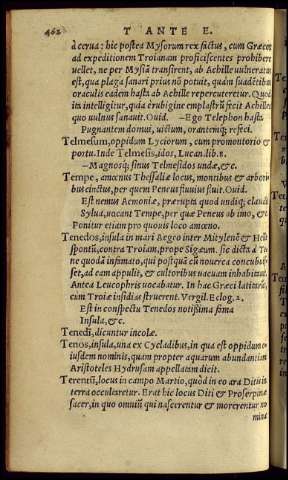 462 T ANTE E.
à cerua: hic postea Mysorum rex factus, cum Græcos
ad expeditionem Troianam proficiscentes prohibere
uellet, ne per Mysiã transirent, ab Achille uulneratus
est, qua plaga sanari prius nõ potuit, quàm suadẽtibus
oraculis eadem hasta ab Achille repercuteretur. Quod
ita intelligitur, quia ærugine emplastrũ fecit Achilles
quo uulnus sanauit. Ouid. —Ego Telephon hasta
Pugnantem domui, uictum, orantemq; refeci.
Telmesum, oppidum Lyciorum, cum promontorio &
portu. Inde Telmesis, idos, Lucan. lib. 8.
—Magnosq; sinus Telmessidos undæ, &c.
Tempe, amœnus Thessaliæ locus, montibus & arbori-
bus cinctus, per quem Peneus fluuius fluit. Ouid.
Est nemus Aemoniæ, prærupta quod undiq; claudit
Sylua, uocant Tempe, per quæ Peneus ab imo, &c.
Ponitur etiam pro quouis loco amœno.
Tenedos, insula in mari Aegeo inter Mitylenẽ & Helle
spontũ, contra Troiam, prope Sigæum. sic dicta à Te-
ne quodã infimato, qui postquã cũ nouerca concubuis
set, ad eam appulit, & cultoribus uacuam inhabitauit.
Antea Leucophris uocabatur. In hac Græci latitarũt,
cum Troiæ insidias struerent. Vergil. Eclog. 2.
Est in conspectu Tenedos notissima fama
Insula, &c.
Tenedi, dicuntur incolæ.
Tenos, insula, una ex Cycladibus, in qua est oppidum e-
iusdem nominis, quam propter aquarum abundantiam
Aristoteles Hydrusam appellatam dicit.
Terentũ, locus in campo Martio, quòd in eo ara Ditis in
terra occularetur. Erat hic locus Diti & Proserpinæ
sacer, in quo omniũ qui nascerentur & morerentur no
mina